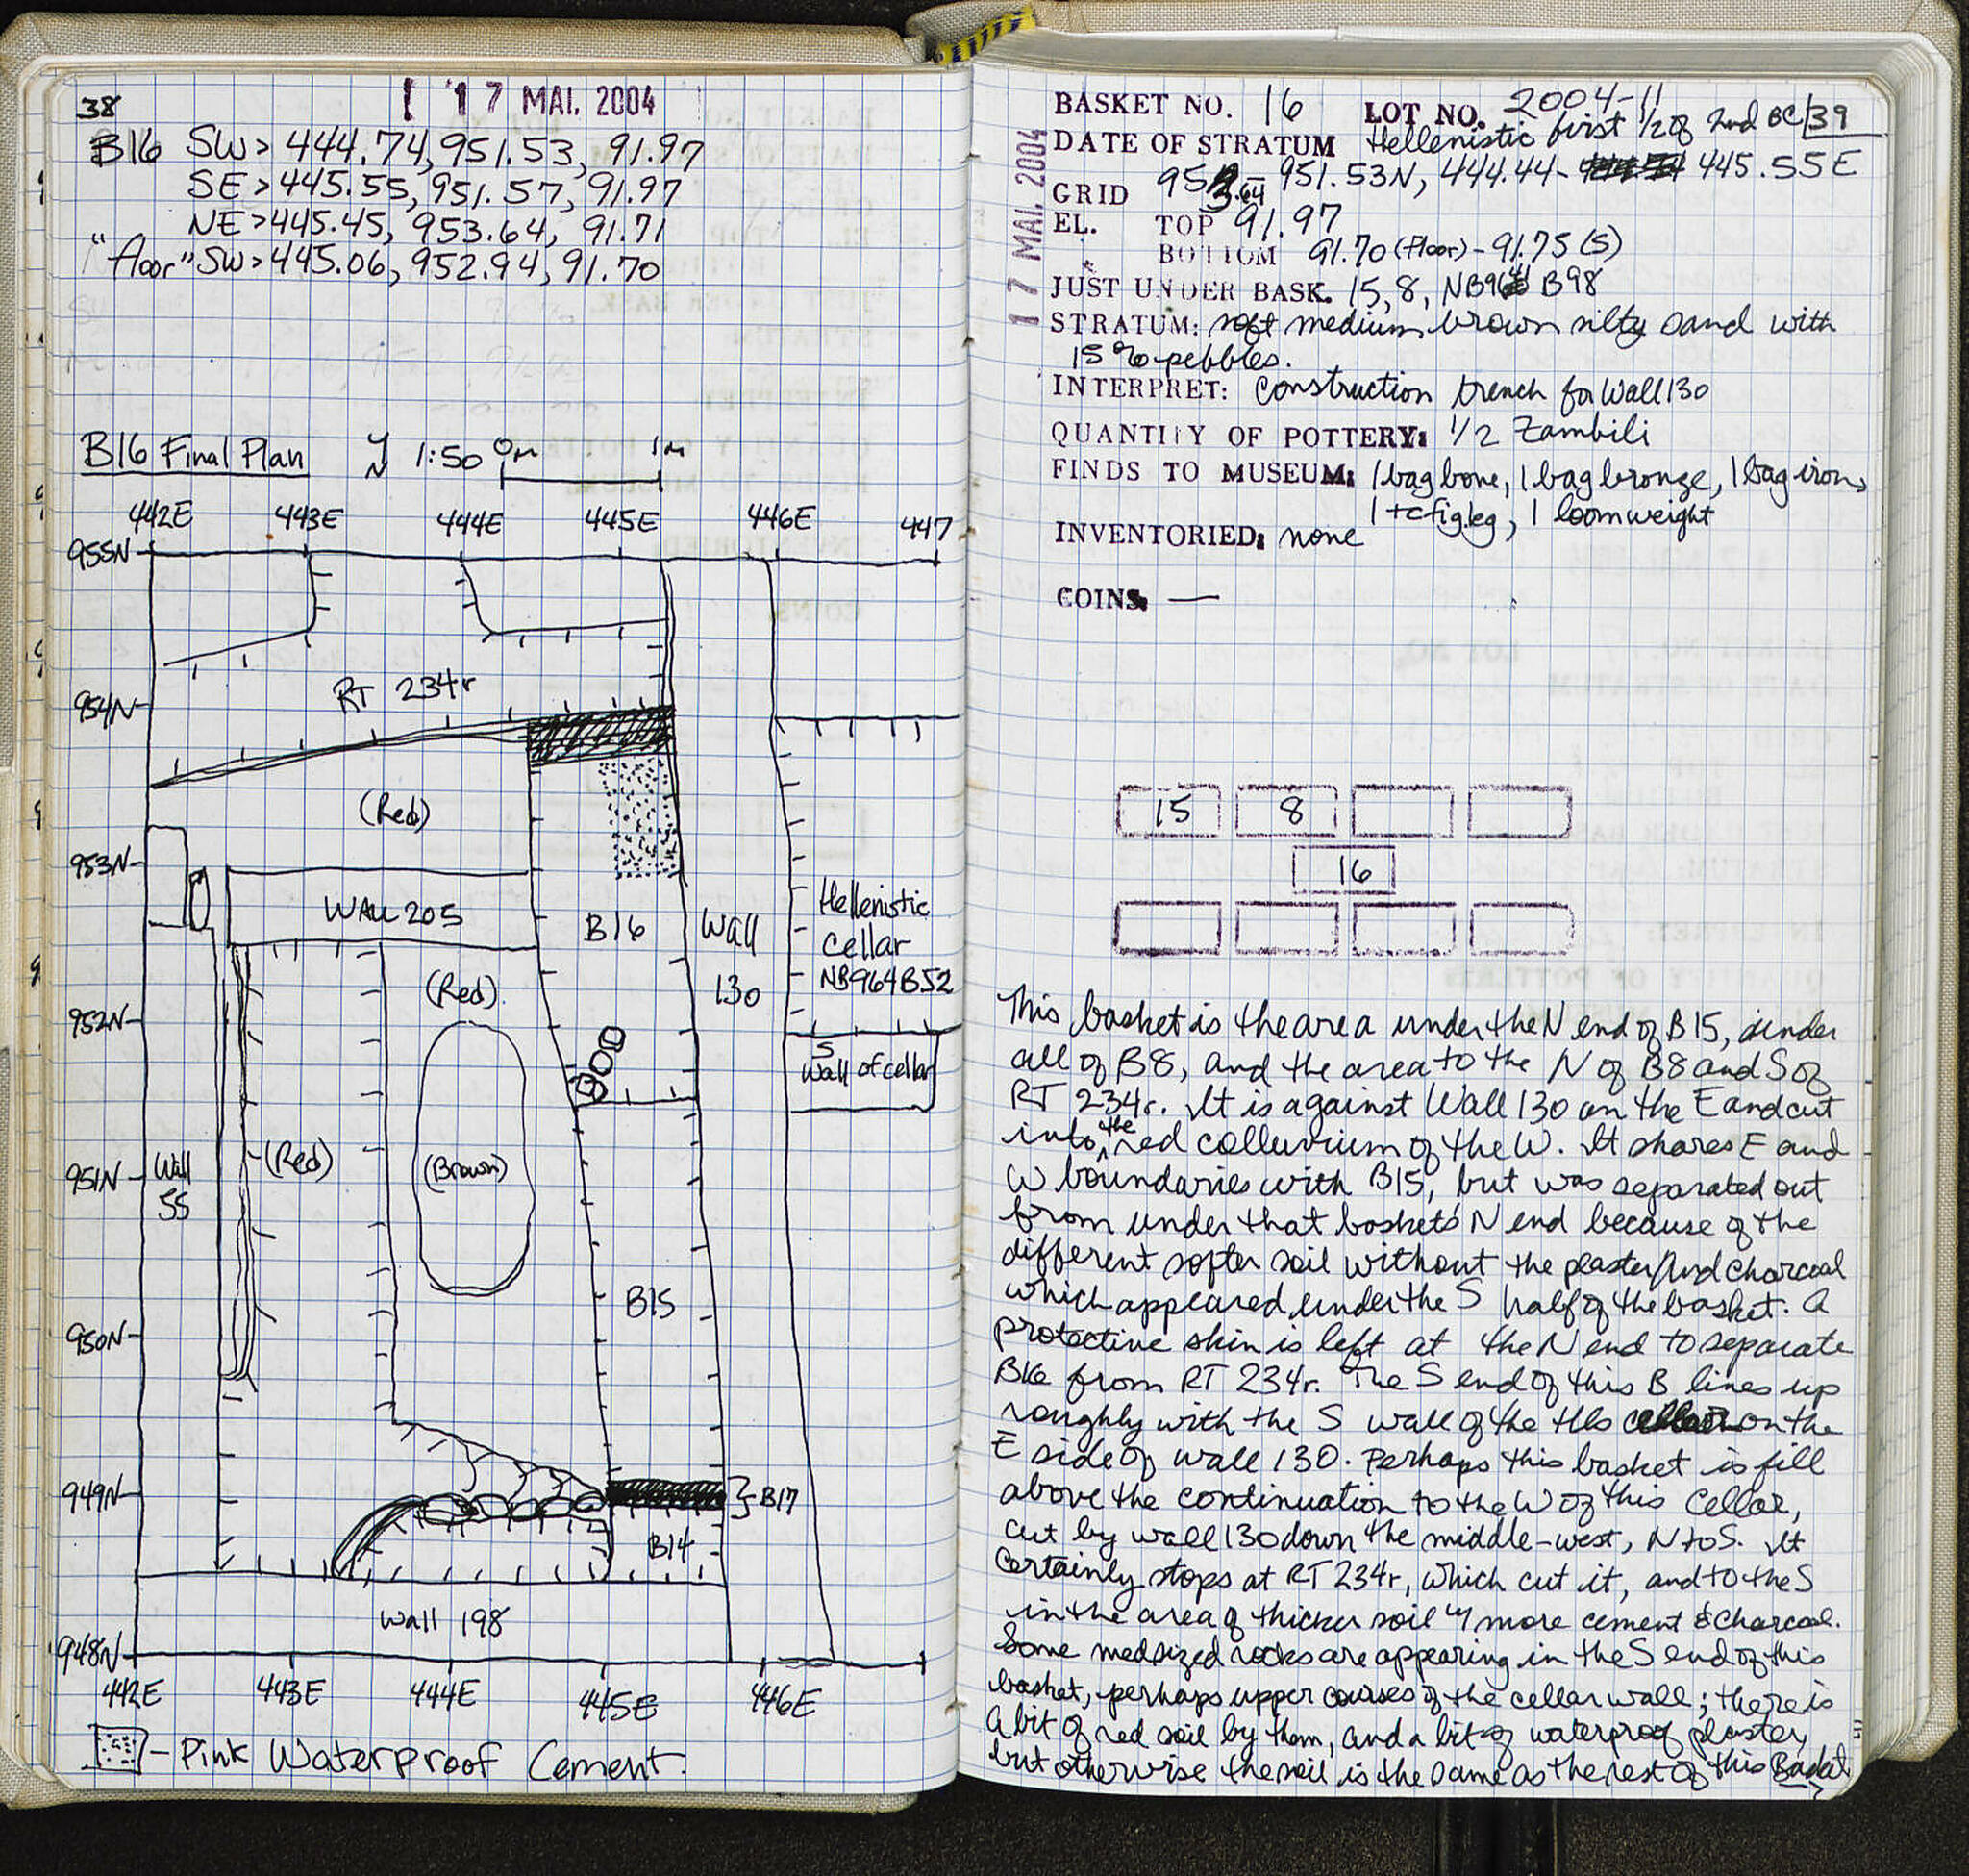 38
17 MAI. 2004
B16 SW> 444.74, 951.53, 91.97
SE > 445.55, 951.57, 91.97
NE > 445.45, 953.64, 91.71
"floor" SW > 445.06, 952.94, 91.70
B16 Final Plan N 1:50 0m 1m
442E 443E 444E 445E 446E 447
955N
RT 234r
954N
(Red)
953N
WALL 205
B16
Wall
130
Hellenistic
cellar
NB964B52
(Red)
952N
S
Wall of cellar
951N
Wall
55
(Red)
(Brown)
B15
950N
949N
B17
B14
Wall 198
948N
442E 443E 444E 445E 446E
- Pink Waterproof Cement.
17 MAI. 2004
BASKET NO. 16 LOT NO. 2004-11
39
DATE OF STRATUM Hellenistic first 1/2 of 2nd BC
GRID 953.64 - 951.53N, 444.44- 445.55E
EL. TOP 91.97
BOTTOM 91.70 (floor) - 91.75 (S)
JUST UNDER BASK. 15, 8, NB964 B98
STRATUM: soft medium brown silty sand with
15% pebbles.
INTERPRET: Construction trench for Wall 130
QUANTITY OF POTTERY: 1/2 Zambili
FINDS TO MUSEUM: 1 bag bone, 1 bag bronze, 1 bag iron,
1 tc fig. leg, 1 loomweight
INVENTORIED: none
COINS: —
15 8
16
This basket is the area under the N end of B15, under
all of B8, and the area to the N of B8 and S of
RT 234r. It is against Wall 130 on the E and cut
into the red colluvium of the W. It shares E and
W boundaries with B15, but was separated out
from under that baskets' N end because of the
different softer soil without the plaster and charcoal
which appeared under the S half of the basket. A
protective skin is left at the N end to separate
B16 from RT 234r. The S end of this B lines up
roughly with the S wall of the Hls cellar on the
E side of wall 130. Perhaps this basket is fill
above the continuation to the W of this cellar,
cut by wall 130 down the middle-west, N to S. It
certainly stops at RT 234r, which cut it, and to the S
in the area of thicker soil w/ more cement & charcoal.
Some medsized rocks are appearing in the S end of this
basket, perhaps upper courses of the cellar wall; there is
a bit of red soil by them, and a bit of waterproof plaster,
but otherwise the soil is the same as the rest of this Basket